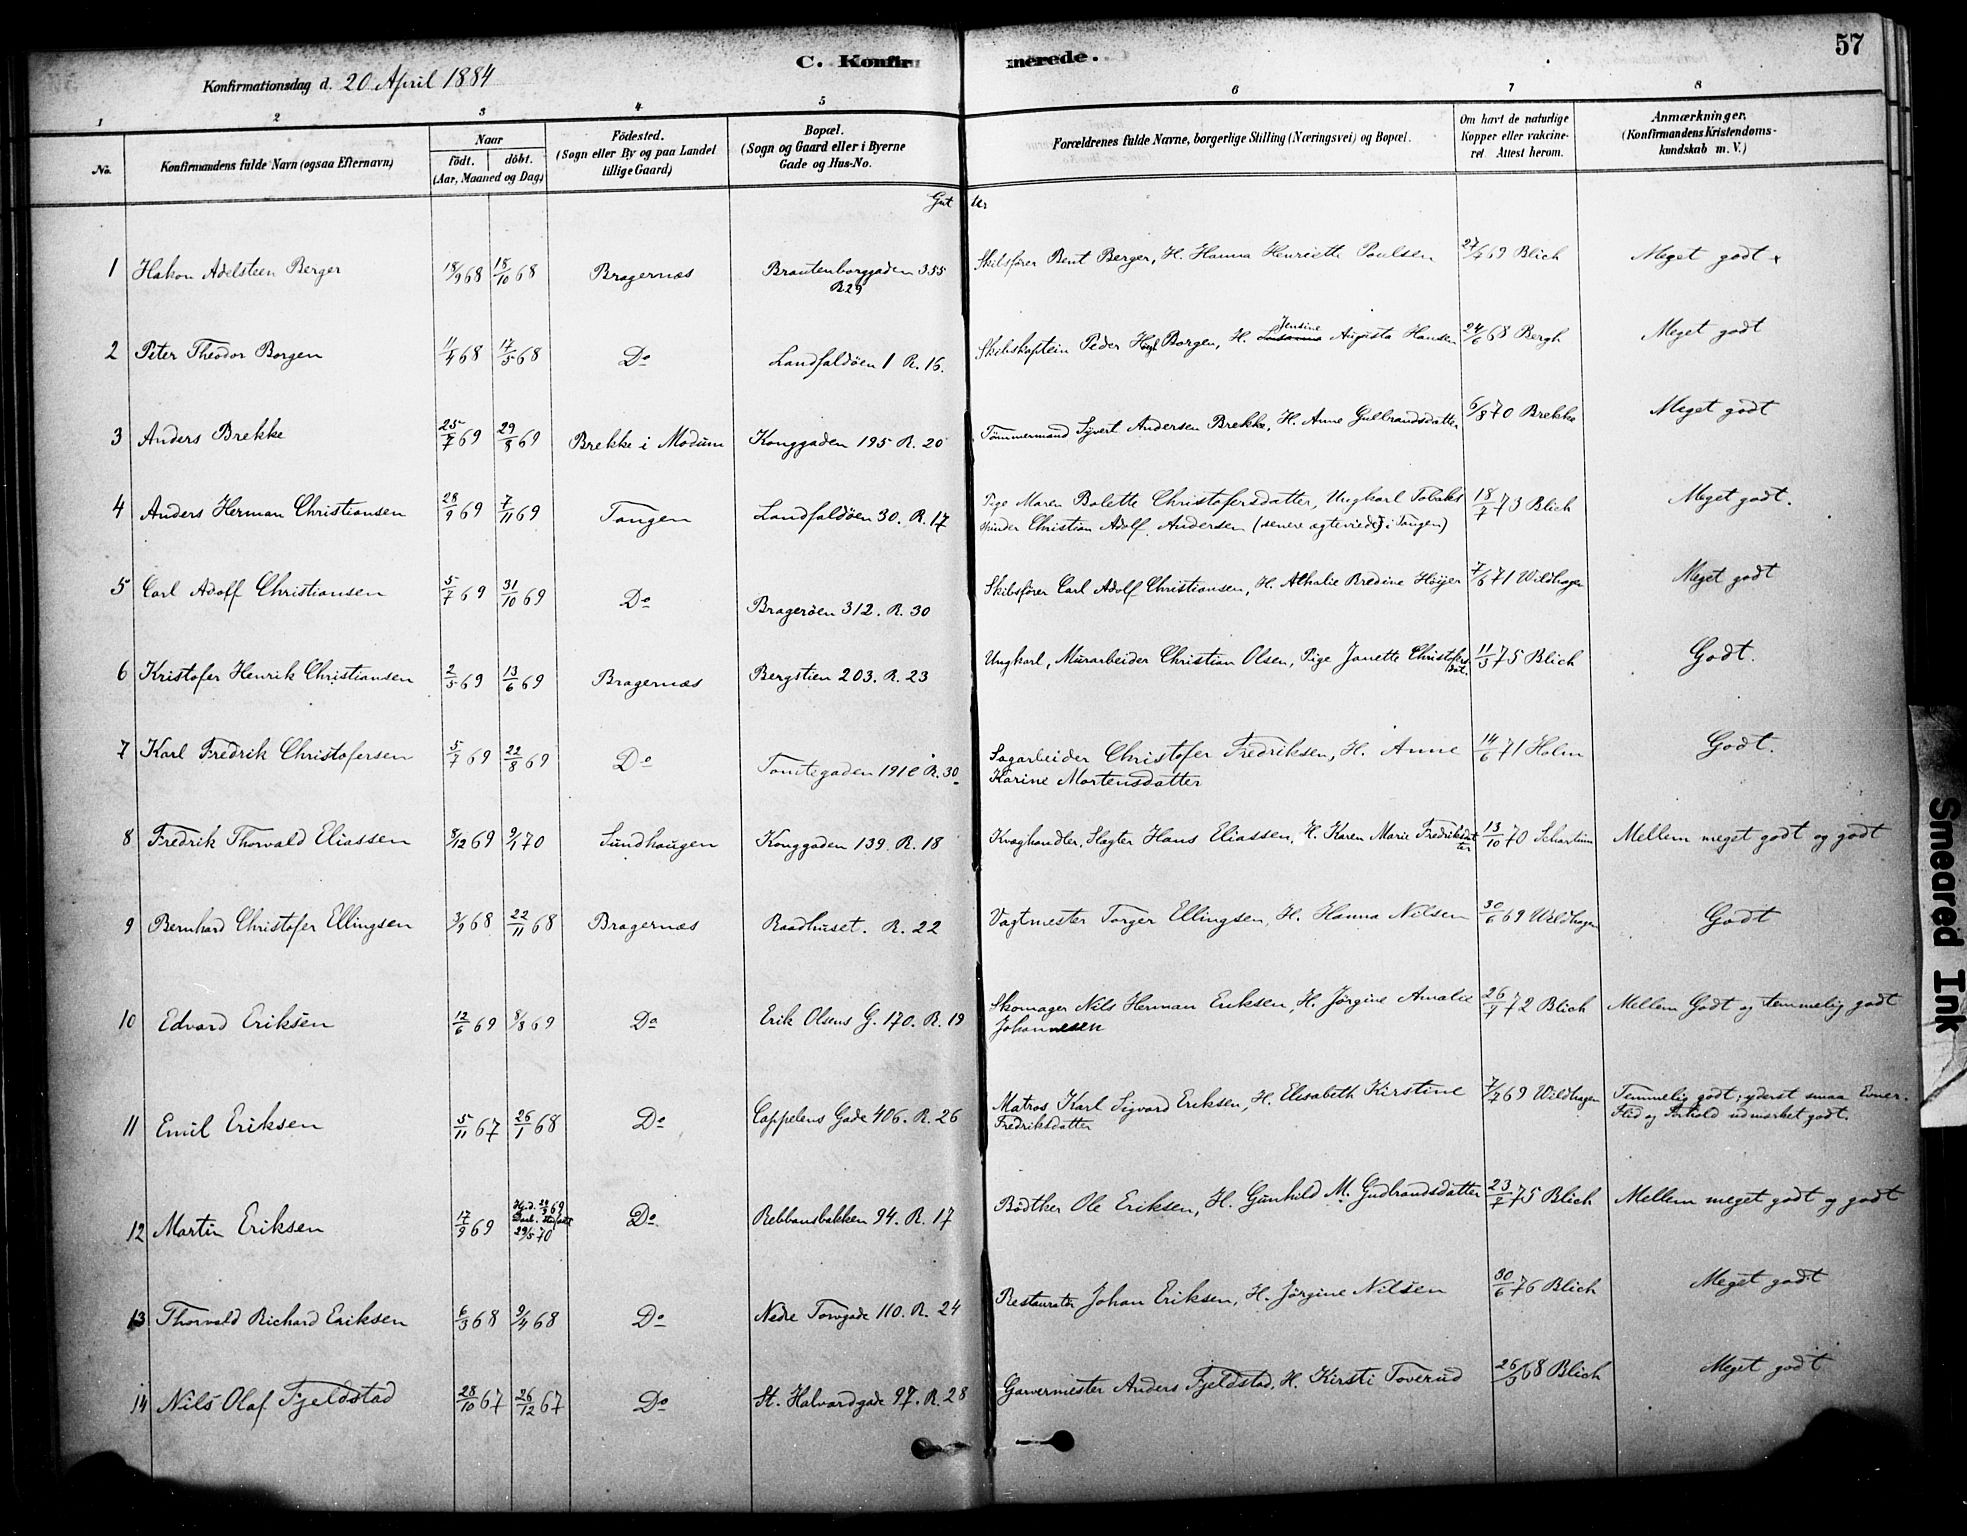 57
C. Konfirmerede.
Konfirmationsdag d. 20 April 1884
1 2 3 4 5 6 7 8
No. Konfirmandens fulde Navn (ogsaa Efternavn) Naar födt. döbt. (Aar, Maaned og Dag) Födested. (Sogn eller By og paa Landet tillige Gaard) Bopæl. (Sogn og Gaard eller i Byerne Gade og Hus-No. Forældrenes fulde Navne, borgerlige Stilling (Næringsvei) og Bopæl. Om havt de naturlige Kopper eller vakcineret. Attest herom. Anmærkninger. (Konfirmandens Kristendomskundskab m. V.)
Gutter
1 Hakon Adelsteen Berger 18/9 68 18/10 68 Bragernæs Brautenborggaden 355 R 29 Skibsfører Bent Berger, H. Hanna Henriette Poulsen 69 Blich Meget godt
2 Peter Theodor Borgen 11/4 68 17/5 68 Do Landfaldöen 1 R. 16. Skibskaptein Peder Borgen, H. Jensine Augusta Hansen 24/6 68 Bergh Meget godt
3 Anders Brekke 25/7 69 29/8 69 Brekke i Modum Konggaden 195 R. 20 Tömmermand Syvert Andersen Brekke, H. Anne Gulbrandsdatter 6/8 70 Brekke Meget godt
4 Anders Herman Christiansen 28/9 69 7/11 69 Tangen Landfaldöen 30. R. 17 Pige Maren Bolette Christofersdatter, Ungkarl Tobaks
spinder Christian Adolf Andersen (senere ægteviede i Tangen) 18/7 73 Blich Meget godt.
5 Carl Adolf Christiansen 5/7 69 31/10 69 Do Bragerøen 312. R. 30 Skibsfører Carl Adolf Christiansen, H. Athalie Bredine Höyer 7/6 71 Wildhagen Meget godt
6 Kristofer Henrik Christiansen 2/5 69 13/6 69 Bragernæs Bergstien 203. R. 23 Ungkarl, Murarbeider Christian Olsen, Pige Janette Christofersdat. 11/5 75 Blich Godt.
7 Karl Fredrik Christofersen 5/7 69 22/8 69 Do Tomtegaden 191 R. 30 Sagarbeider Christofer Fredriksen, H. Anne
Karine Mortensdatter 14/6 71 Holm Godt.
8 Fredrik Thorvald Eliassen 8/12 69 9/1 70 Sundhaugen Konggaden 139. R. 18 Kvæghandler, Slagter Hans Eliassen, H. Karen Marie Fredriksdatter 13/10 70 Schartum Mellem meget godt og godt
9 Bernhard Christofer Ellingsen 3/9 68 22/11 68 Bragernæs Raadhuset. R. 22 Vagtmester Torger Ellingsen, H. Hanna Nilsen 30/6 69 Wildhagen Godt
10 Edvard Eriksen 12/6 69 8/8 69 Do Erik Olsens G. 170. R. 19 Skomager Nils Herman Eriksen, H. Jörgine Amalie
Johannesen 26/9 72 Blich Mellem Godt og temmelig godt
11 Emil Eriksen 5/11 67 26/1 68 Do Cappelens Gade 406. R. 26 Matros Karl Sigvard Eriksen, H. Elisabeth Kirstine
Fredriksdatter 7/7 69 Wildhagen Temmelig godt; yderst smaa Evner.
Flid og Forhold udmærket godt.
12 Martin Eriksen 17/9 69 Hj.d. 69 29/5 70 Do Rebbansbakken 94. R. 17 Bödtker Ole Eriksen, H. Gunhild M. Gudbrandsdatter 23/7 75 Blich Mellem meget godt og godt
13 Thorvald Richard Eriksen 6/3 68 9/4 68 Do Nedre Torvgade 110. R. 24 Restauratör Johan Eriksen, H. Jörgine Nilsen 30/6 76 Blich Meget godt
14 Nils Olaf Fjeldstad 28/10 67 26/12 67 Do St. Halvardgade 97. R. 28 Garvermester Anders Fjeldstad, H. Kirsti Toverud 26/5 68 Blich Meget godt
Smeared Ink